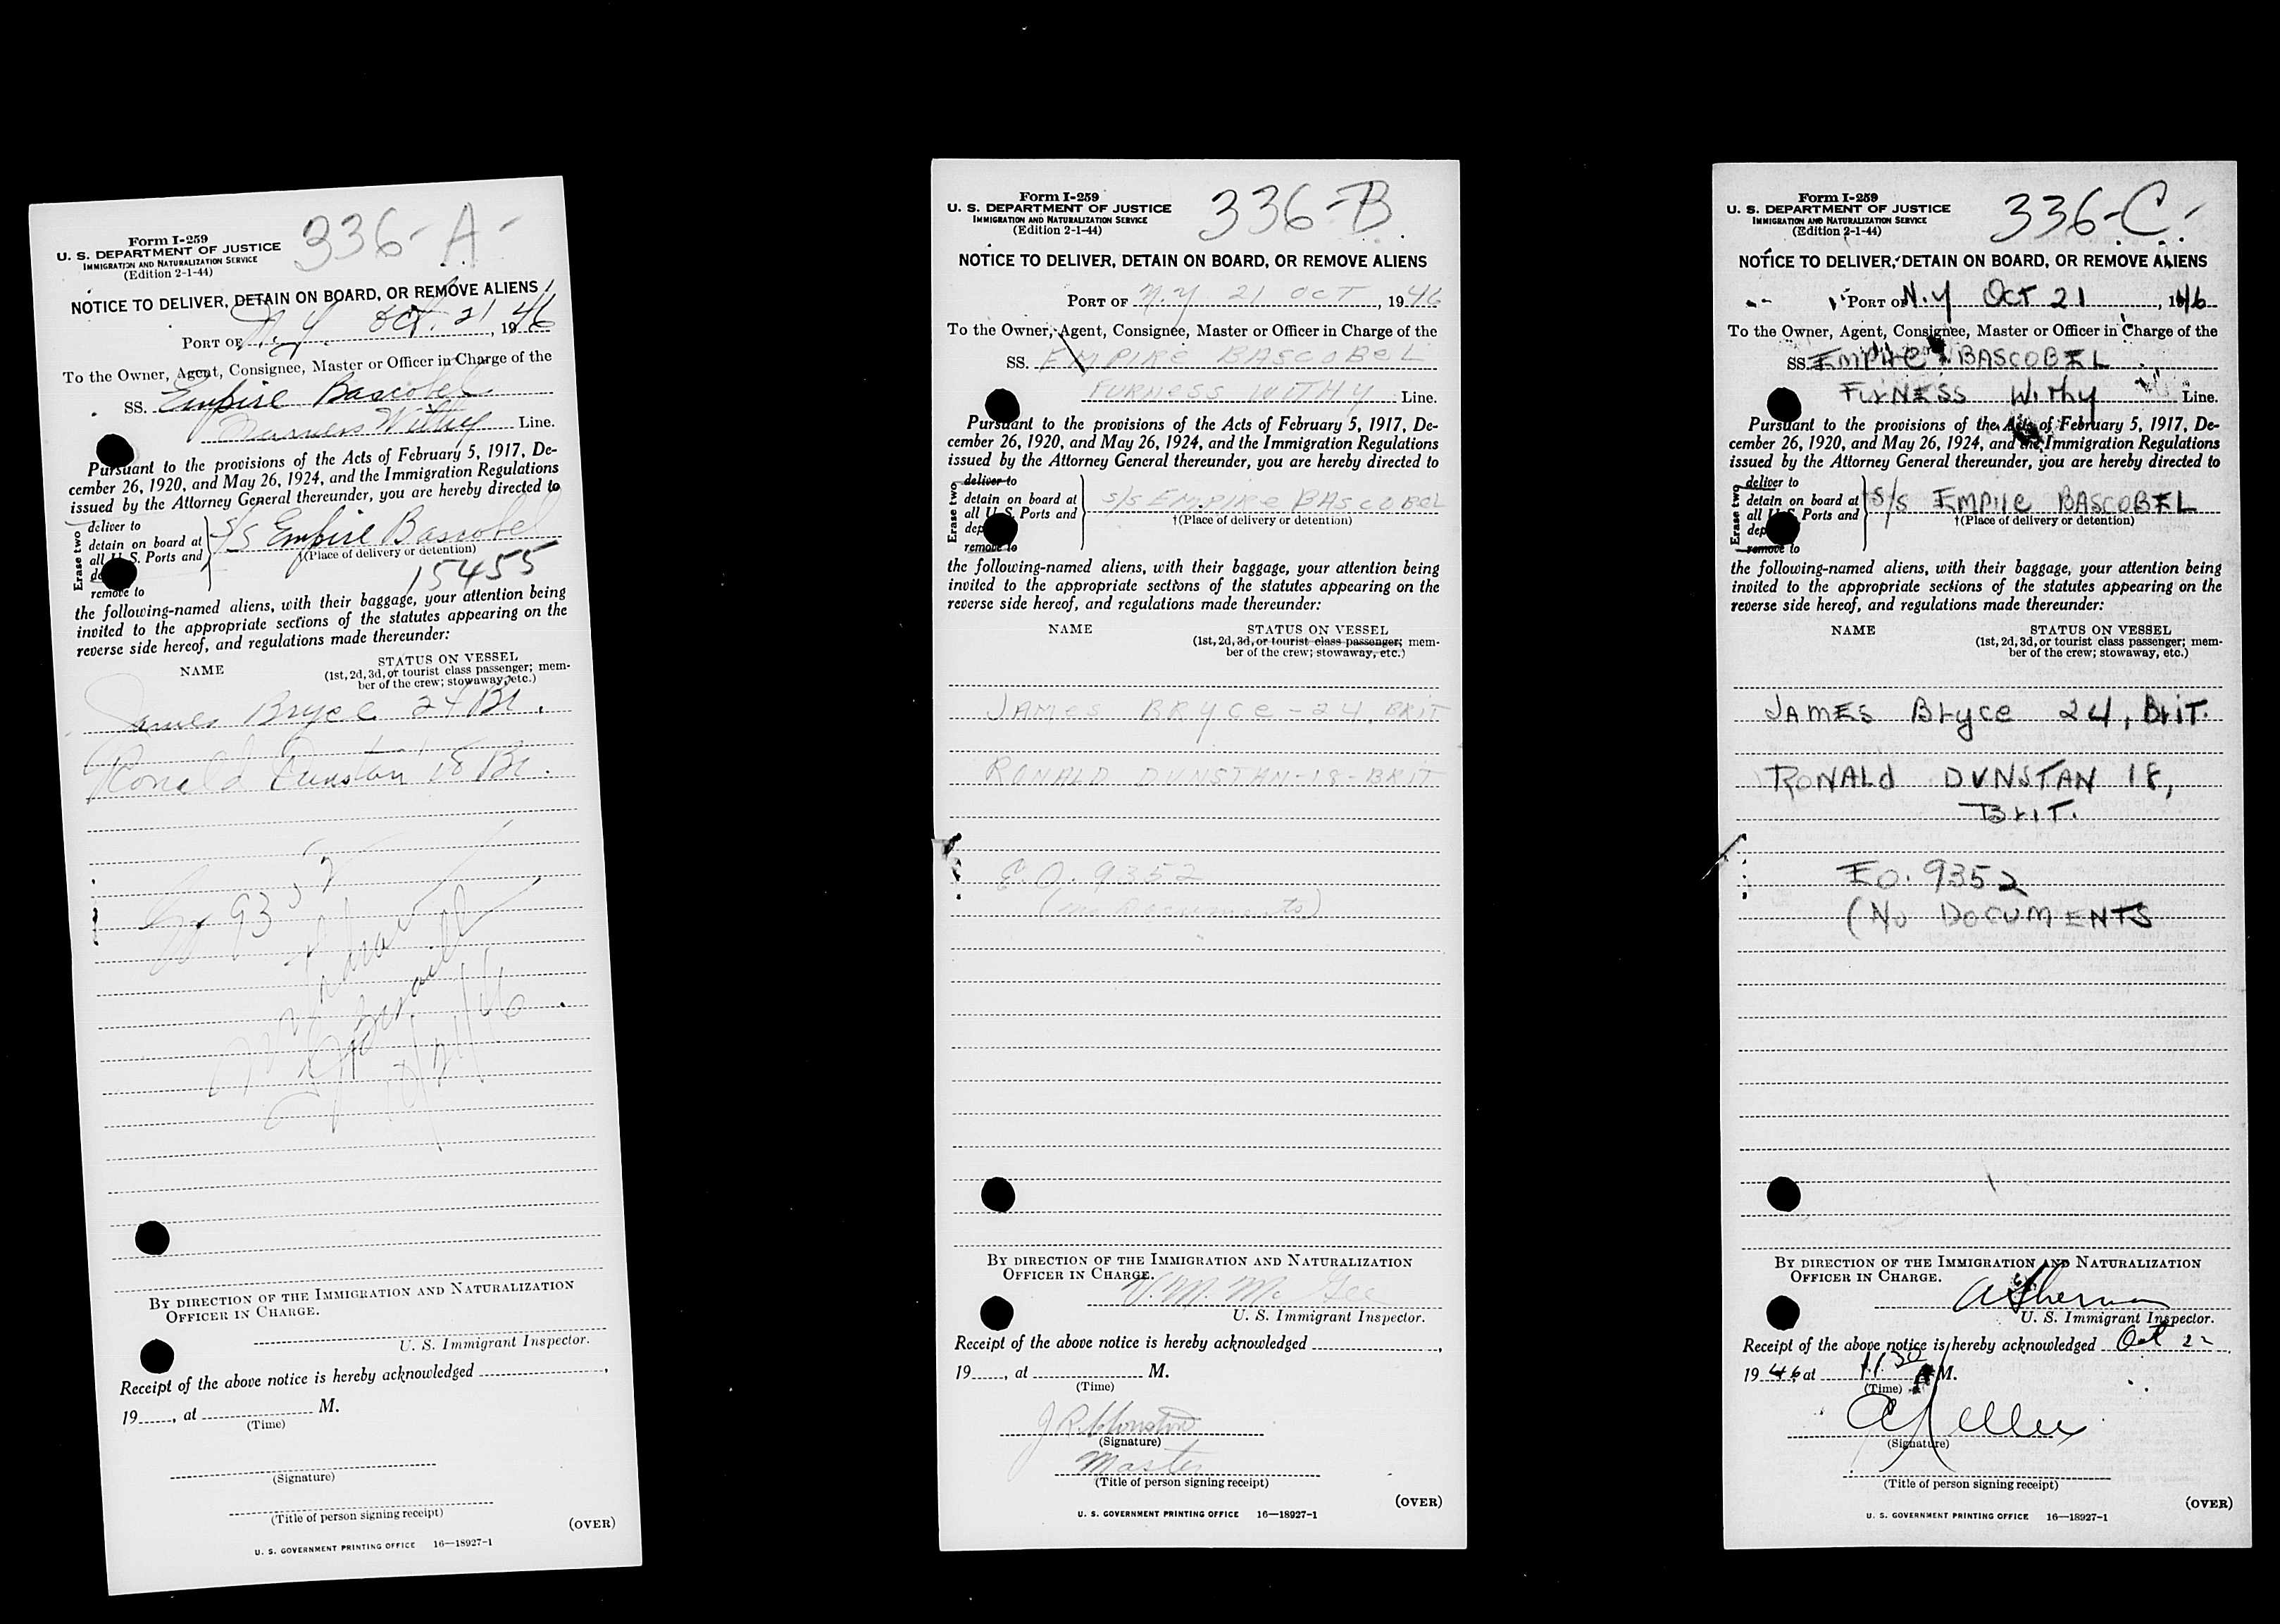 336-A-
Form I-259
U. S. DEPARTMENT OF JUSTICE
IMMIGRATION AND NATURALIZATION SERVICE
(Edition 2-1-44)
NOTICE TO DELIVER, DETAIN ON BOARD, OR REMOVE ALIENS
PORT OF N.Y. Oct. 21, 1946
To the Owner, Agent, Consignee, Master or Officer in Charge of the
SS. Empire Bascobel
Withy Line.
Pursuant to the provisions of the Acts of February 5, 1917, De-
cember 26, 1920, and May 26, 1924, and the Immigration Regulations
issued by the Attorney General thereunder, you are hereby directed to
Erase two
deliver to
detain on board at
all U. S. Ports and
remove to
S/S Empire Bascobel
†(Place of delivery or detention)
15455
the following-named aliens, with their baggage, your attention being
invited to the appropriate sections of the statutes appearing on the
reverse side hereof, and regulations made thereunder:
NAME
STATUS ON VESSEL
(1st, 2d, 3d, or tourist class passenger; mem-
ber of the crew; stowaway, etc.)
James Bryce 24 Br.
Ronald Dunstan 18 Br.
9352
10/21/46
BY DIRECTION OF THE IMMIGRATION AND NATURALIZATION
OFFICER IN CHARGE.
U. S. Immigrant Inspector.
Receipt of the above notice is hereby acknowledged
19, at M.
(Time)
(Signature)
(Title of person signing receipt)
(OVER)
U. S. GOVERNMENT PRINTING OFFICE 16—18927-1
336-B
Form I-259
U. S. DEPARTMENT OF JUSTICE
IMMIGRATION AND NATURALIZATION SERVICE
(Edition 2-1-44)
NOTICE TO DELIVER, DETAIN ON BOARD, OR REMOVE ALIENS
PORT OF N.Y 21 OCT, 1946
To the Owner, Agent, Consignee, Master or Officer in Charge of the
SS. EMPIRE BASCOBEL
FURNESS WITHY Line.
Pursuant to the provisions of the Acts of February 5, 1917, De-
cember 26, 1920, and May 26, 1924, and the Immigration Regulations
issued by the Attorney General thereunder, you are hereby directed to
Erase two
deliver to
detain on board at
all U. S. Ports and
dep
remove to
S/S EMPIRE BASCOBEL
†(Place of delivery or detention)
the following-named aliens, with their baggage, your attention being
invited to the appropriate sections of the statutes appearing on the
reverse side hereof, and regulations made thereunder:
NAME
STATUS ON VESSEL
(1st, 2d, 3d, or tourist class passenger; mem-
ber of the crew; stowaway, etc.)
JAMES BRYCE - 24, BRIT
RONALD DUNSTAN - 18 - BRIT
E.O. 9352
(no Documents)
BY DIRECTION OF THE IMMIGRATION AND NATURALIZATION
OFFICER IN CHARGE.
W. M. McGee
U. S. Immigrant Inspector.
Receipt of the above notice is hereby acknowledged
19, at M.
(Time)
(Signature)
Master
(Title of person signing receipt)
(OVER)
U. S. GOVERNMENT PRINTING OFFICE 16—18927-1
336-C-
Form I-259
U. S. DEPARTMENT OF JUSTICE
IMMIGRATION AND NATURALIZATION SERVICE
(Edition 2-1-44)
NOTICE TO DELIVER, DETAIN ON BOARD, OR REMOVE ALIENS
PORT OF N.Y Oct 21, 1946
To the Owner, Agent, Consignee, Master or Officer in Charge of the
SS. EMPIrE BASCOBEL
FUrNESS Withy Line.
Pursuant to the provisions of the Acts of February 5, 1917, De-
cember 26, 1920, and May 26, 1924, and the Immigration Regulations
issued by the Attorney General thereunder, you are hereby directed to
Erase two
deliver to
detain on board at
all U. S. Ports and
dep
remove to
S/S EMPIrE BASCOBEL
†(Place of delivery or detention)
the following-named aliens, with their baggage, your attention being
invited to the appropriate sections of the statutes appearing on the
reverse side hereof, and regulations made thereunder:
NAME
STATUS ON VESSEL
(1st, 2d, 3d, or tourist class passenger; mem-
ber of the crew; stowaway, etc.)
JAMES Bryce 24, BriT.
RONALd DUNSTAN 18,
BriT.
EO. 9352
(No DOCUMENTS
BY DIRECTION OF THE IMMIGRATION AND NATURALIZATION
OFFICER IN CHARGE.
U. S. Immigrant Inspector.
Receipt of the above notice is hereby acknowledged Oct 22,
1946, at 11:30 A M.
(Time)
(Signature)
(Title of person signing receipt)
(OVER)
U. S. GOVERNMENT PRINTING OFFICE 16—18927-1